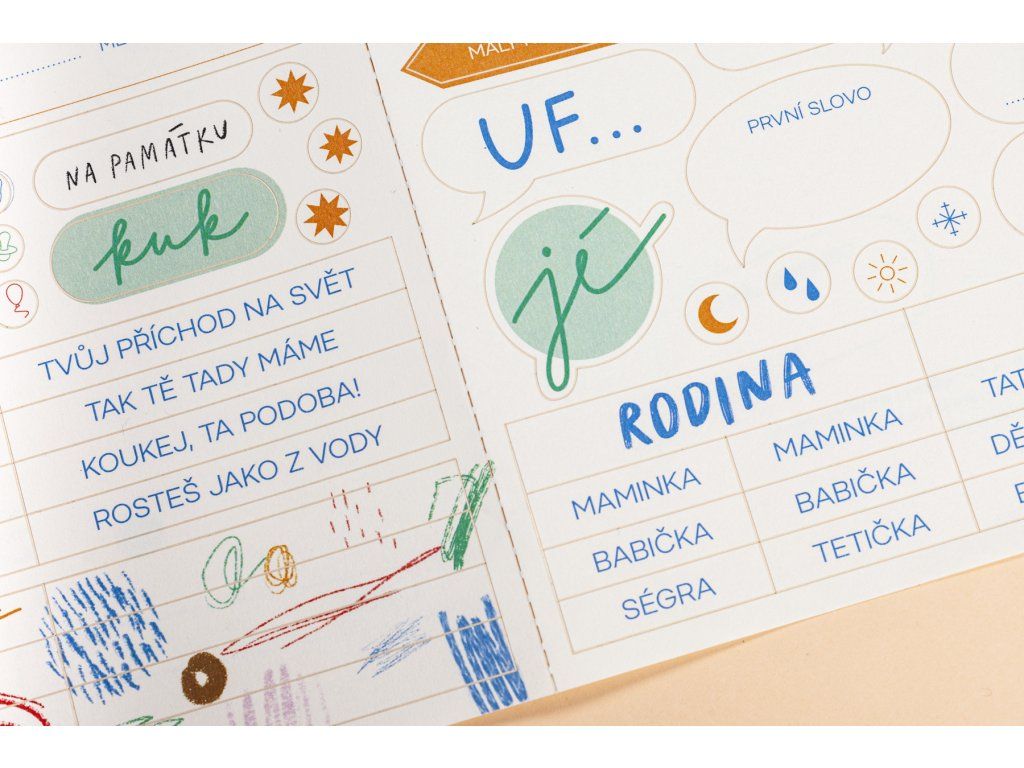 NA PAMÁTKU
kuk
TVŮJ PŘÍCHOD NA SVĚT
TAK TĚ TADY MÁME
KOUKEJ, TA PODOBA!
ROSTEŠ JAKO Z VODY
UF...
PRVNÍ SLOVO
jé
RODINA
MAMINKA
MAMINKA
BABIČKA
BABIČKA
SÉGRA
TETIČKA